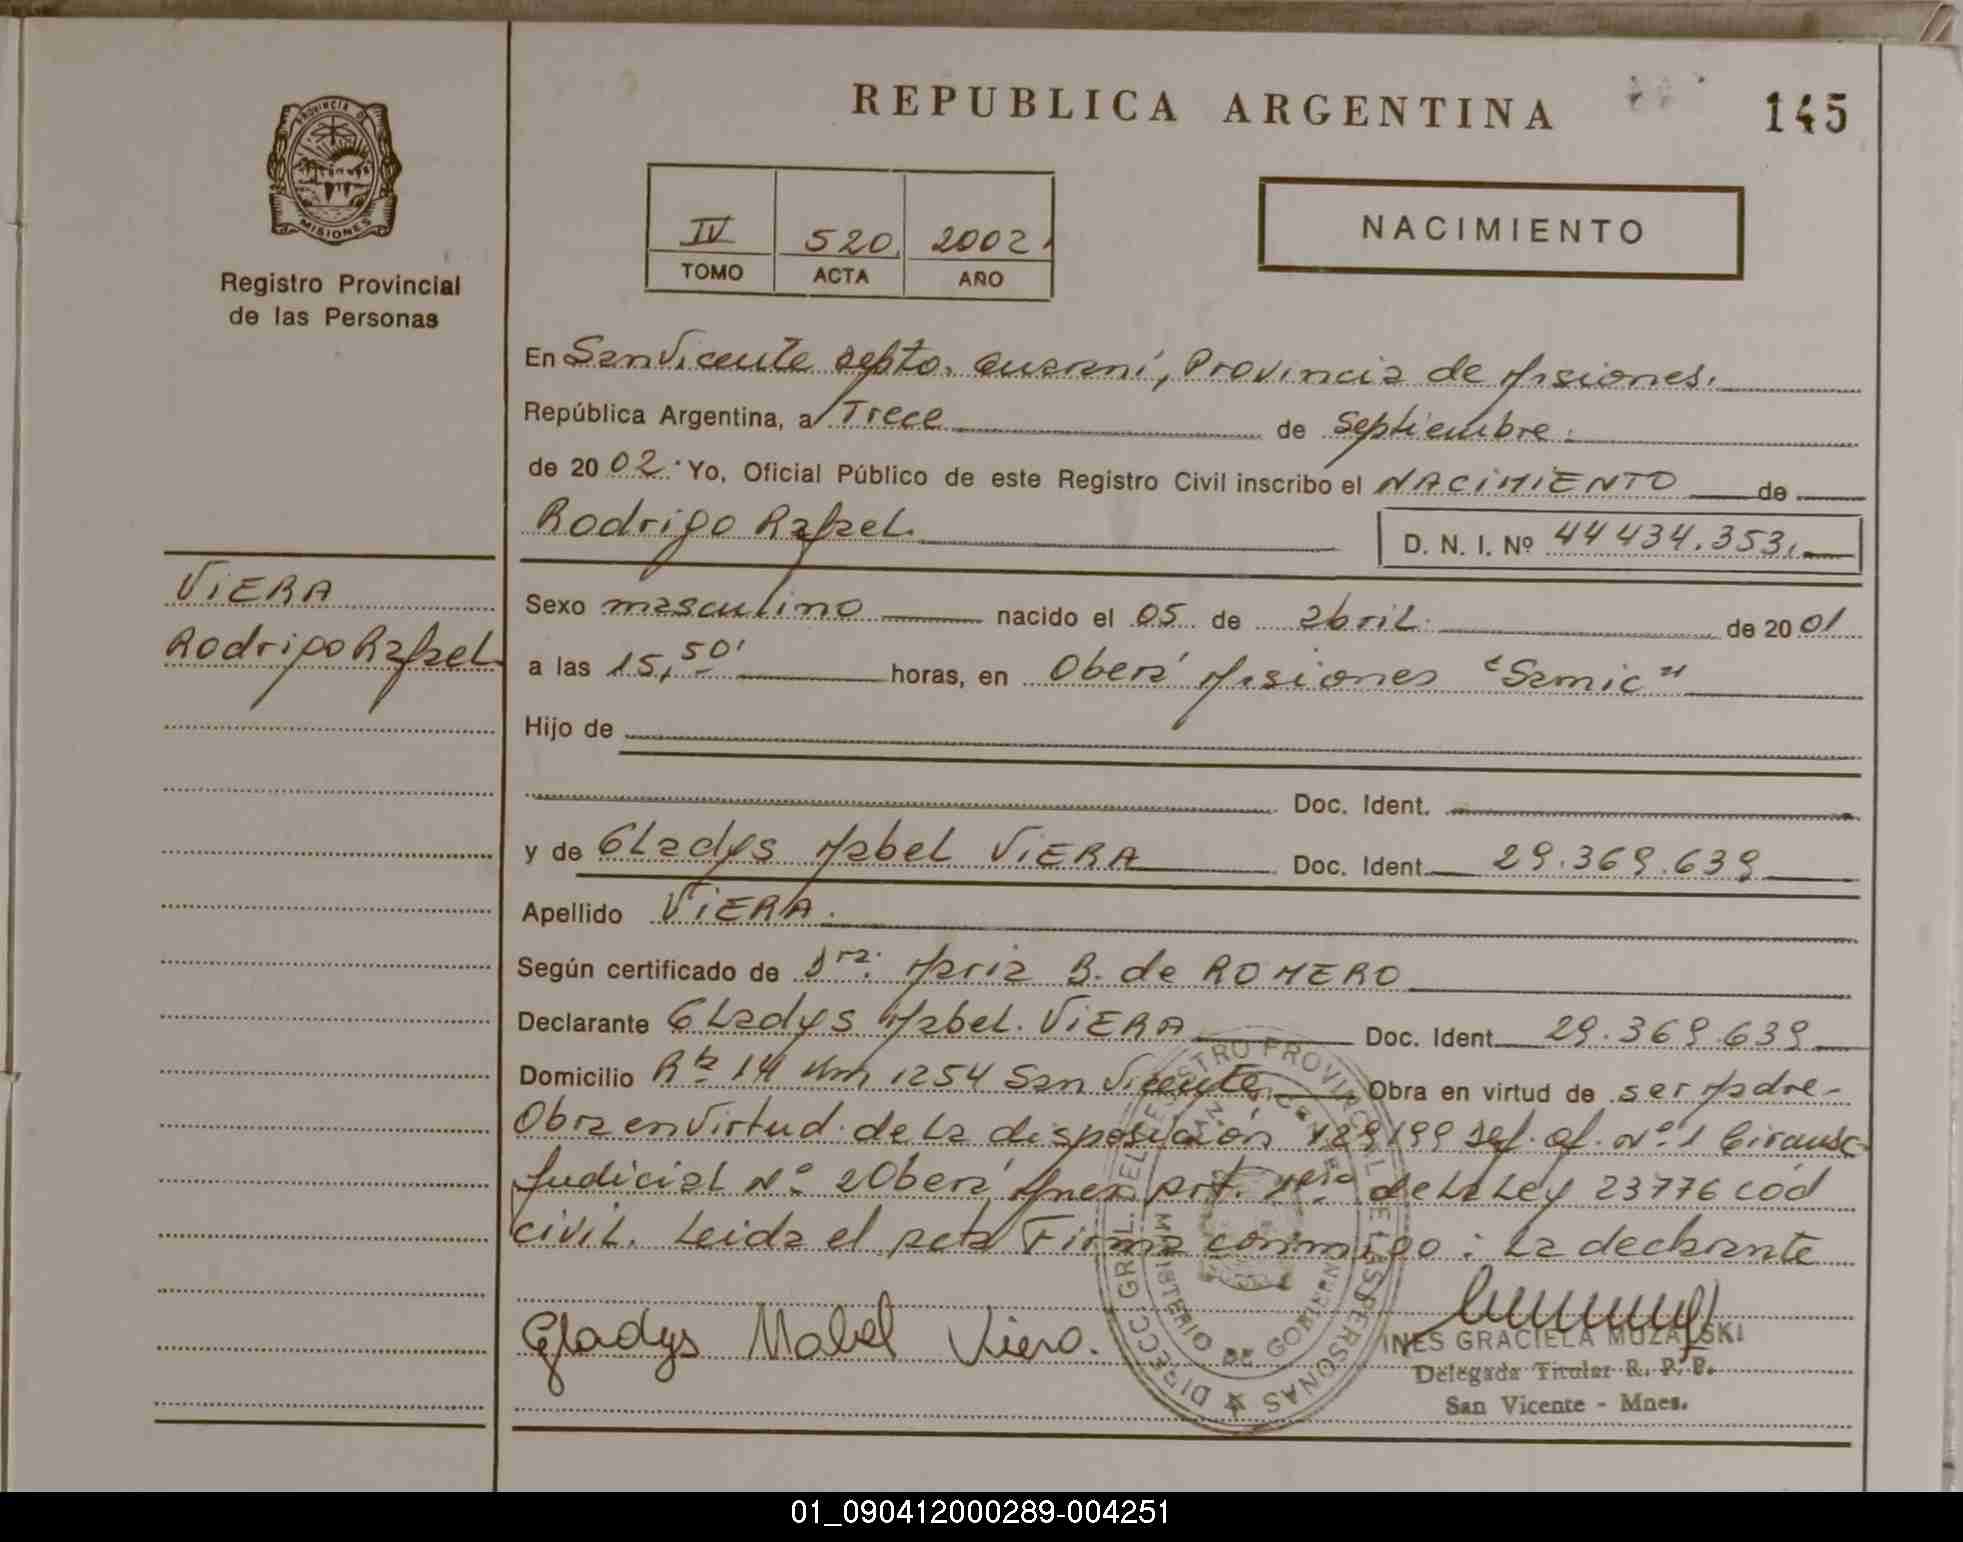 REPUBLICA ARGENTINA
145
PROVINCIA DE
MISIONES
Registro Provincial
de las Personas
IV 520 2002
TOMO ACTA AÑO
NACIMIENTO
En San Vicente depto. Guaraní, Provincia de Misiones.
República Argentina, a Trece de Septiembre.
de 2002. Yo, Oficial Público de este Registro Civil inscribo el NACIMIENTO de
Rodrigo Rafael. D. N. I. Nº 44434.353.
VIERA
Rodrigo Rafael
Sexo masculino nacido el 05 de abril. de 2001
a las 15,50' horas, en Oberá Misiones "Samic"
Hijo de
Doc. Ident.
y de Gladys Mabel VIERA Doc. Ident. 29.369.639
Apellido VIERA.
Según certificado de Sra. Maria B. de ROMERO
Declarante Gladys Mabel. VIERA Doc. Ident. 29.369.639
Domicilio Rta 14 Km 1254 San Vicente. Obra en virtud de ser Madre-
Obra en virtud de la disposición 129/99 Nº 1
Judicial Nº 2 Oberá Mnes Art. 1ero de la Ley 23776 cod
civil. Leida el acta Firma conmigo: la declarante
Gladys Mabel Viera.
DIRECC. GRAL. DEL REGISTRO PROVINCIAL DE LAS PERSONAS
MINISTERIO DE GOBIERNO
INES GRACIELA
Delegada Titular R. P. P.
San Vicente - Mnes.
01_090412000289-004251